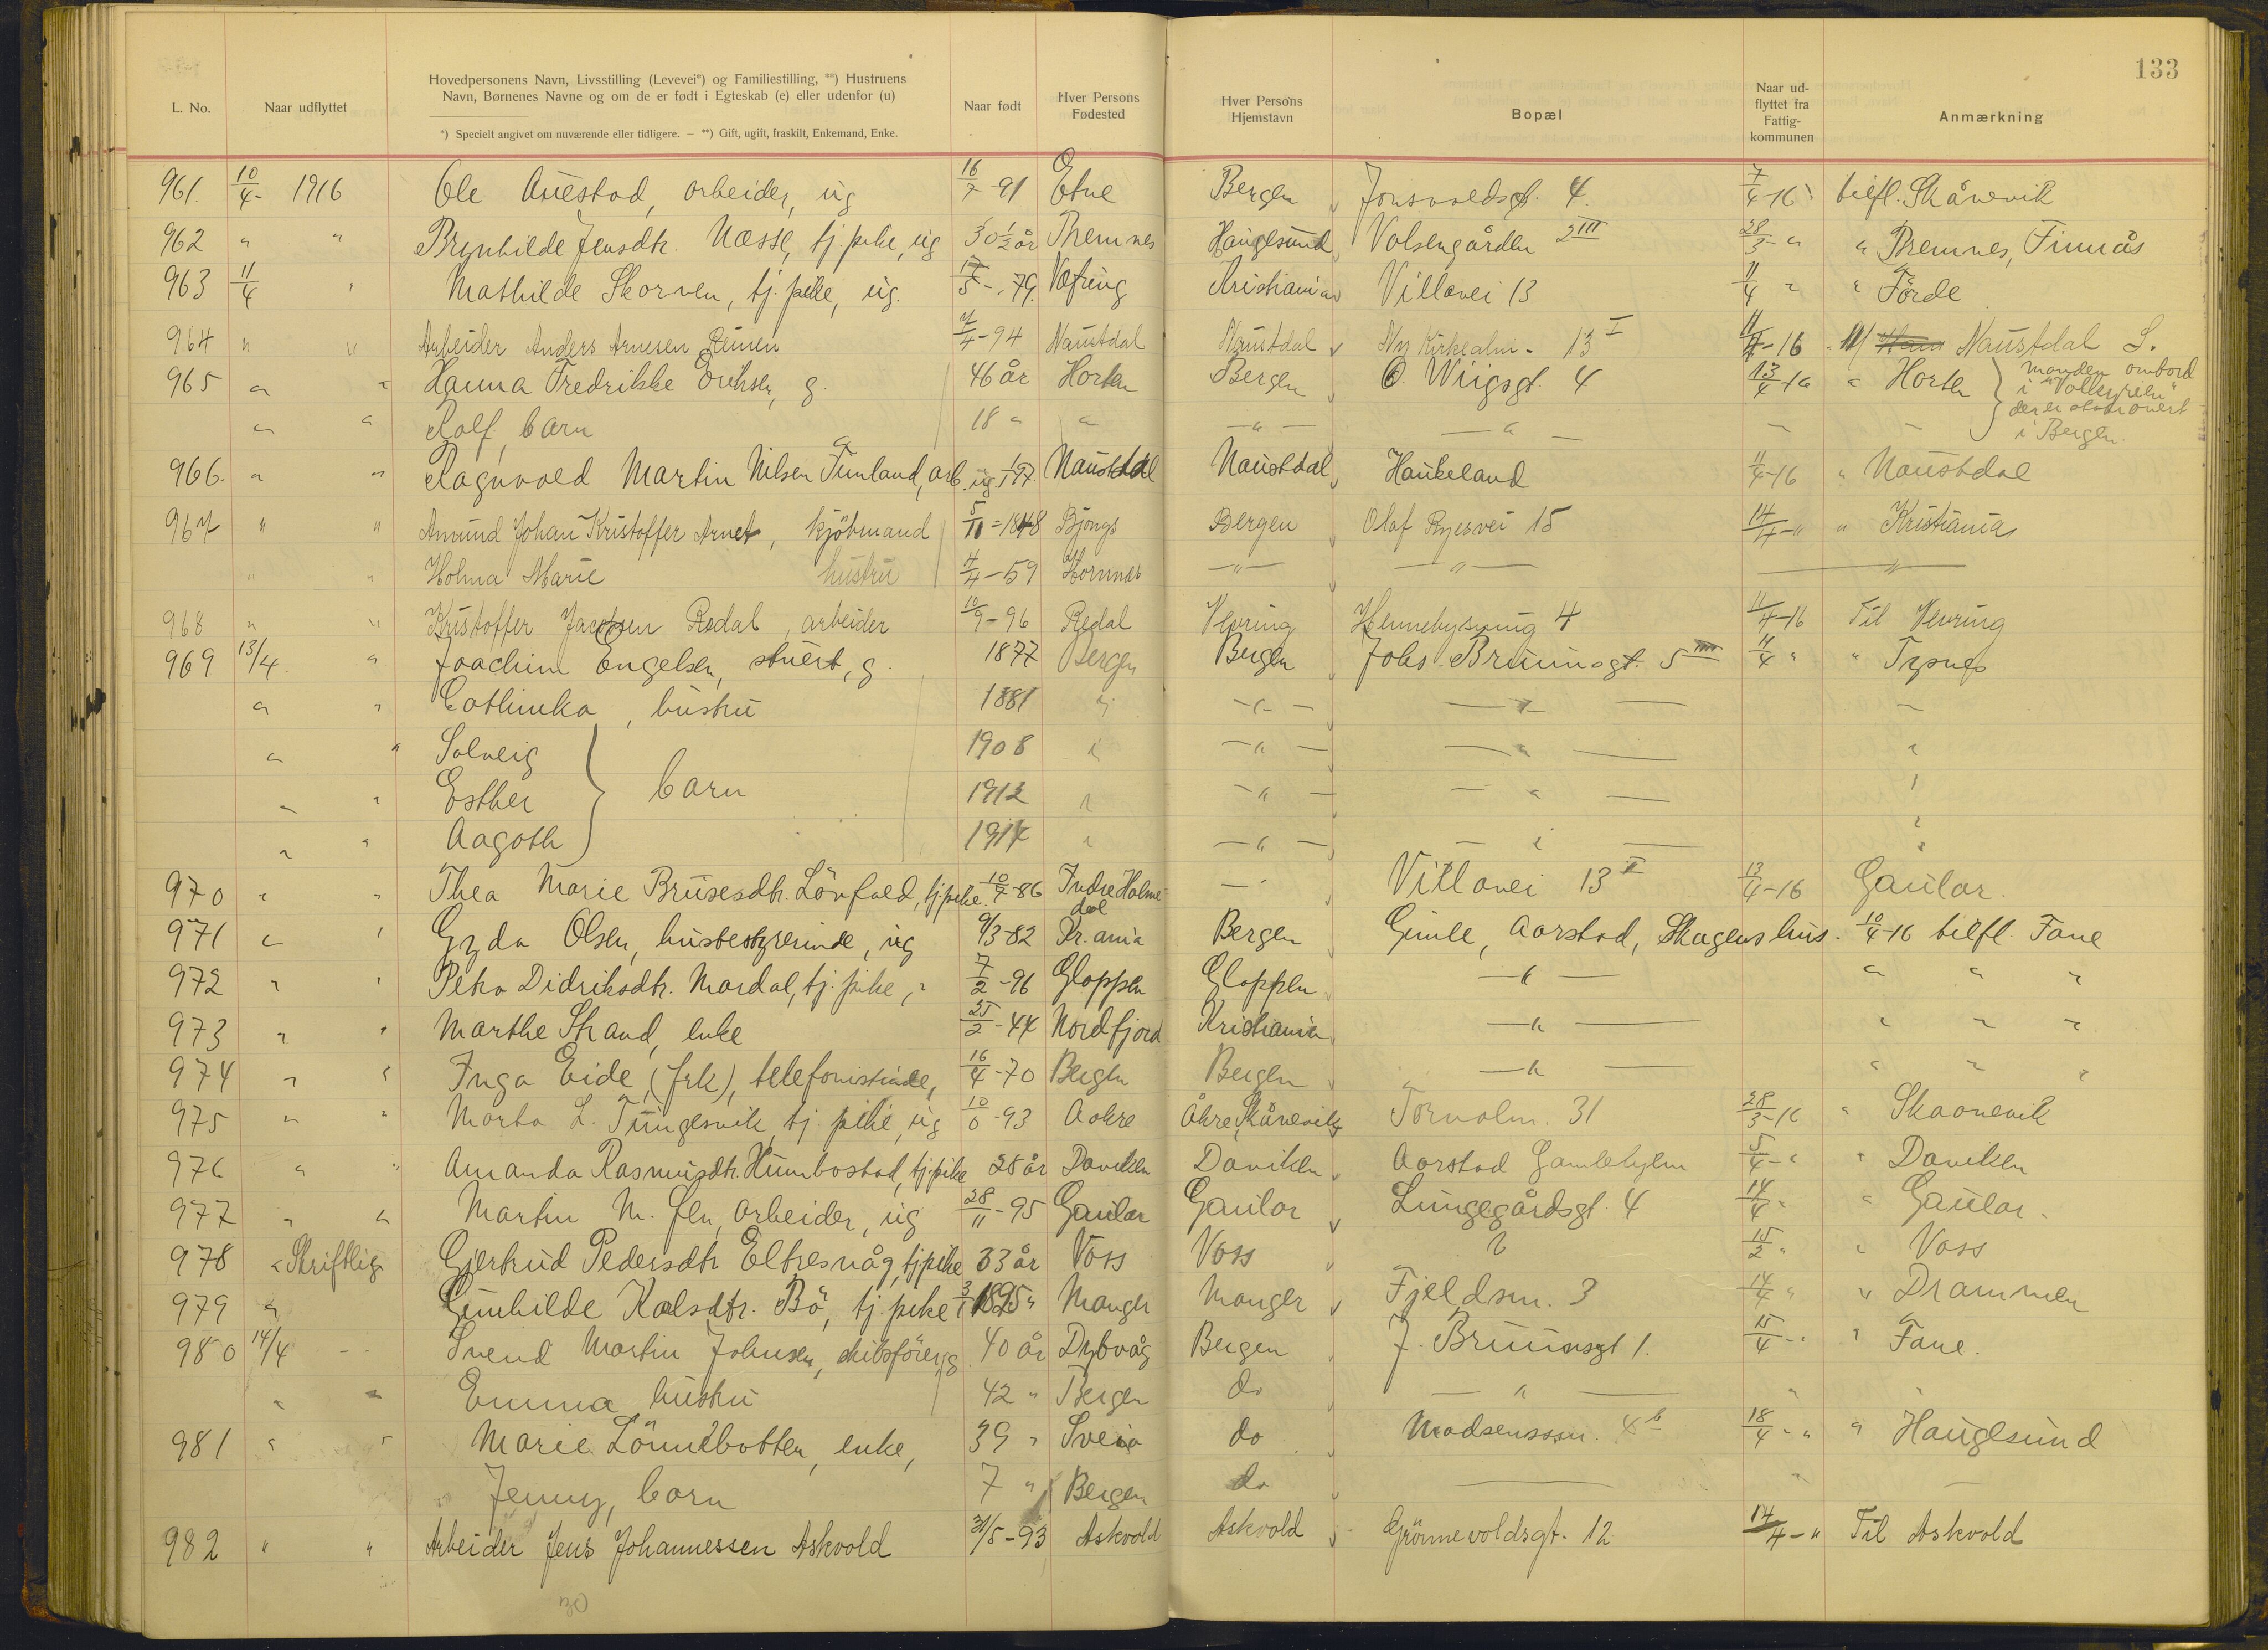 133
L. No. Naar udflyttet Hovedpersonens Navn, Livsstilling (Levevei*) og Familiestilling, **) Hustruens Navn, Børnenes Navne og om de er født i Egteskab (e) eller udenfor (u) Naar født Hver Persons Fødested Hver Persons Hjemstavn Bopæl Naar udflyttet fra Fattigkommunen Anmærkning
*) Specielt angivet om nuværende eller tidligere. — **) Gift, ugift, fraskilt, Enkemand, Enke.
961. 10/4- 1916 Ole Auestad, arbeider, ug 16/7-91 Etne Bergen Jonsvoldsgt. 4. 7/4-16 tilfl. Skånevik
962 " " Brynhilde Jensdtr. Næsse, tj. pike, ug 30 1/2 år Bremnes Haugesund Valsengården 2 III 28/3-" " Bremnes, Finnås
963 11/4 " Mathilde Skorven, tj. pike, ug. 17/5-79. Vefring Kristiania Villavei 13 11/4 " " Förde
964 " " Arbeider Anders Arnesen Reinen 7/4-94 Naustdal Naustdal Ny Kirkealm- 13 I 11/4-16 Naustdal S.
965 " " Hanna Fredrikke Eriksen, g. 46 år Horten Bergen O. Wiigsgt. 4 13/4-16 " Horten } manden ombord i "Valkyrien" der er stationert i Bergen.
" " Rolf, barn 18 " " — " — — " —
966. " " Ragnvald Martin Nilsen Tunland, arb. ug. 1/1-97. Naustdal Naustdal Haukeland 11/4-16 " Naustdal
967 " " Amund Johan Kristoffer Arnet, kjöbmand 5/11-1848 Bjongs Bergen Olaf Ryesvei 15 14/4-" " Kristiania
" " Holma Marie hustru 4/4-59 Hornnes —"— —"— —"—
968 " " Kristoffer Jacobsen Redal, arbeider 10/9-96 Redal Vevring Hennebysmug 4 11/4-16 Til Vevring
969 13/4. " Joachim Engelsen, stuert, g. 1877 Bergen Bergen Johs. Bruunsgt. 5 III 11/4 " " Tysnes
" " Cathinka, hustru 1881 " —"— —"— —
" " Solveig } 1908 " —"— —"— "
" " Esther } barn 1912 " —"— —"— "
" " Aagoth } 1914 " —"— —"— "
970 " " Thea Marie Brusesdtr. Lövfald, tj. pike. 10/7-86 Indre Holmedal —" Villavei 13 I 13/4-16 Gaular.
971 " " Gyda Olsen, husbestyrerinde, ug 9/3-82 Kr.ania Bergen Gimle, Aarstad, Skagens hus. 10/4-16 tilfl. Fane
972 " " Petra Didriksdtr. Mardal, tj. pike, " 7/2-96 Gloppen Gloppen —"— " " "
973 " " Marthe Strand, enke 25/2-44 Nordfjord Kristiania —"— " " "
974 " " Inga Eide, (frk), telefonistinde, 16/4-70 Bergen Bergen —"— " " "
975 " " Marta L. Tungesvik, tj. pike, ug 10/6-93 Aakre Åkre, Skånevik Torvalm. 31 28/3-16 " Skaanevik
976 " " Amanda Rasmusdtr. Humbostad, tj. pike 28 år Daviken Daviken Aarstad Gamlehjem 5/4-" " Daviken
977 " " Martin M. Sen, arbeider, ug 28/11-95 Gaular Gaular Lungegårdsgt. 4 14/4 " " Gaular.
978 " Skriftlig Gjertrud Pedersdtr Eltresvåg, tj. pike 33 år Voss Voss ? 15/2 " " Voss
979 " Gunhilde Karlsdtr. Bö, tj. pike 3/1 1895 " Manger Manger Fjeldsm. 3 14/4 " " Drammen
980 14/4 -- Svend Martin Johnsen, skibsförer, g 40 år Dybvåg Bergen J. Bruunsgt 1. 15/4-" " Fane.
" " Emma, hustru 42 " Bergen do —"— " "
981 " " Marie Lönnebotten, enke, 39 " Sveio do Madsenssm. 4 b 18/4-" " Haugesund
Jenny, barn 7 " Bergen do — " —
982 " " Arbeider Jens Johannessen Askvold 31/5-93 Askvold Askvold Grönnevoldsgt. 12 14/4-" Til Askvold
30